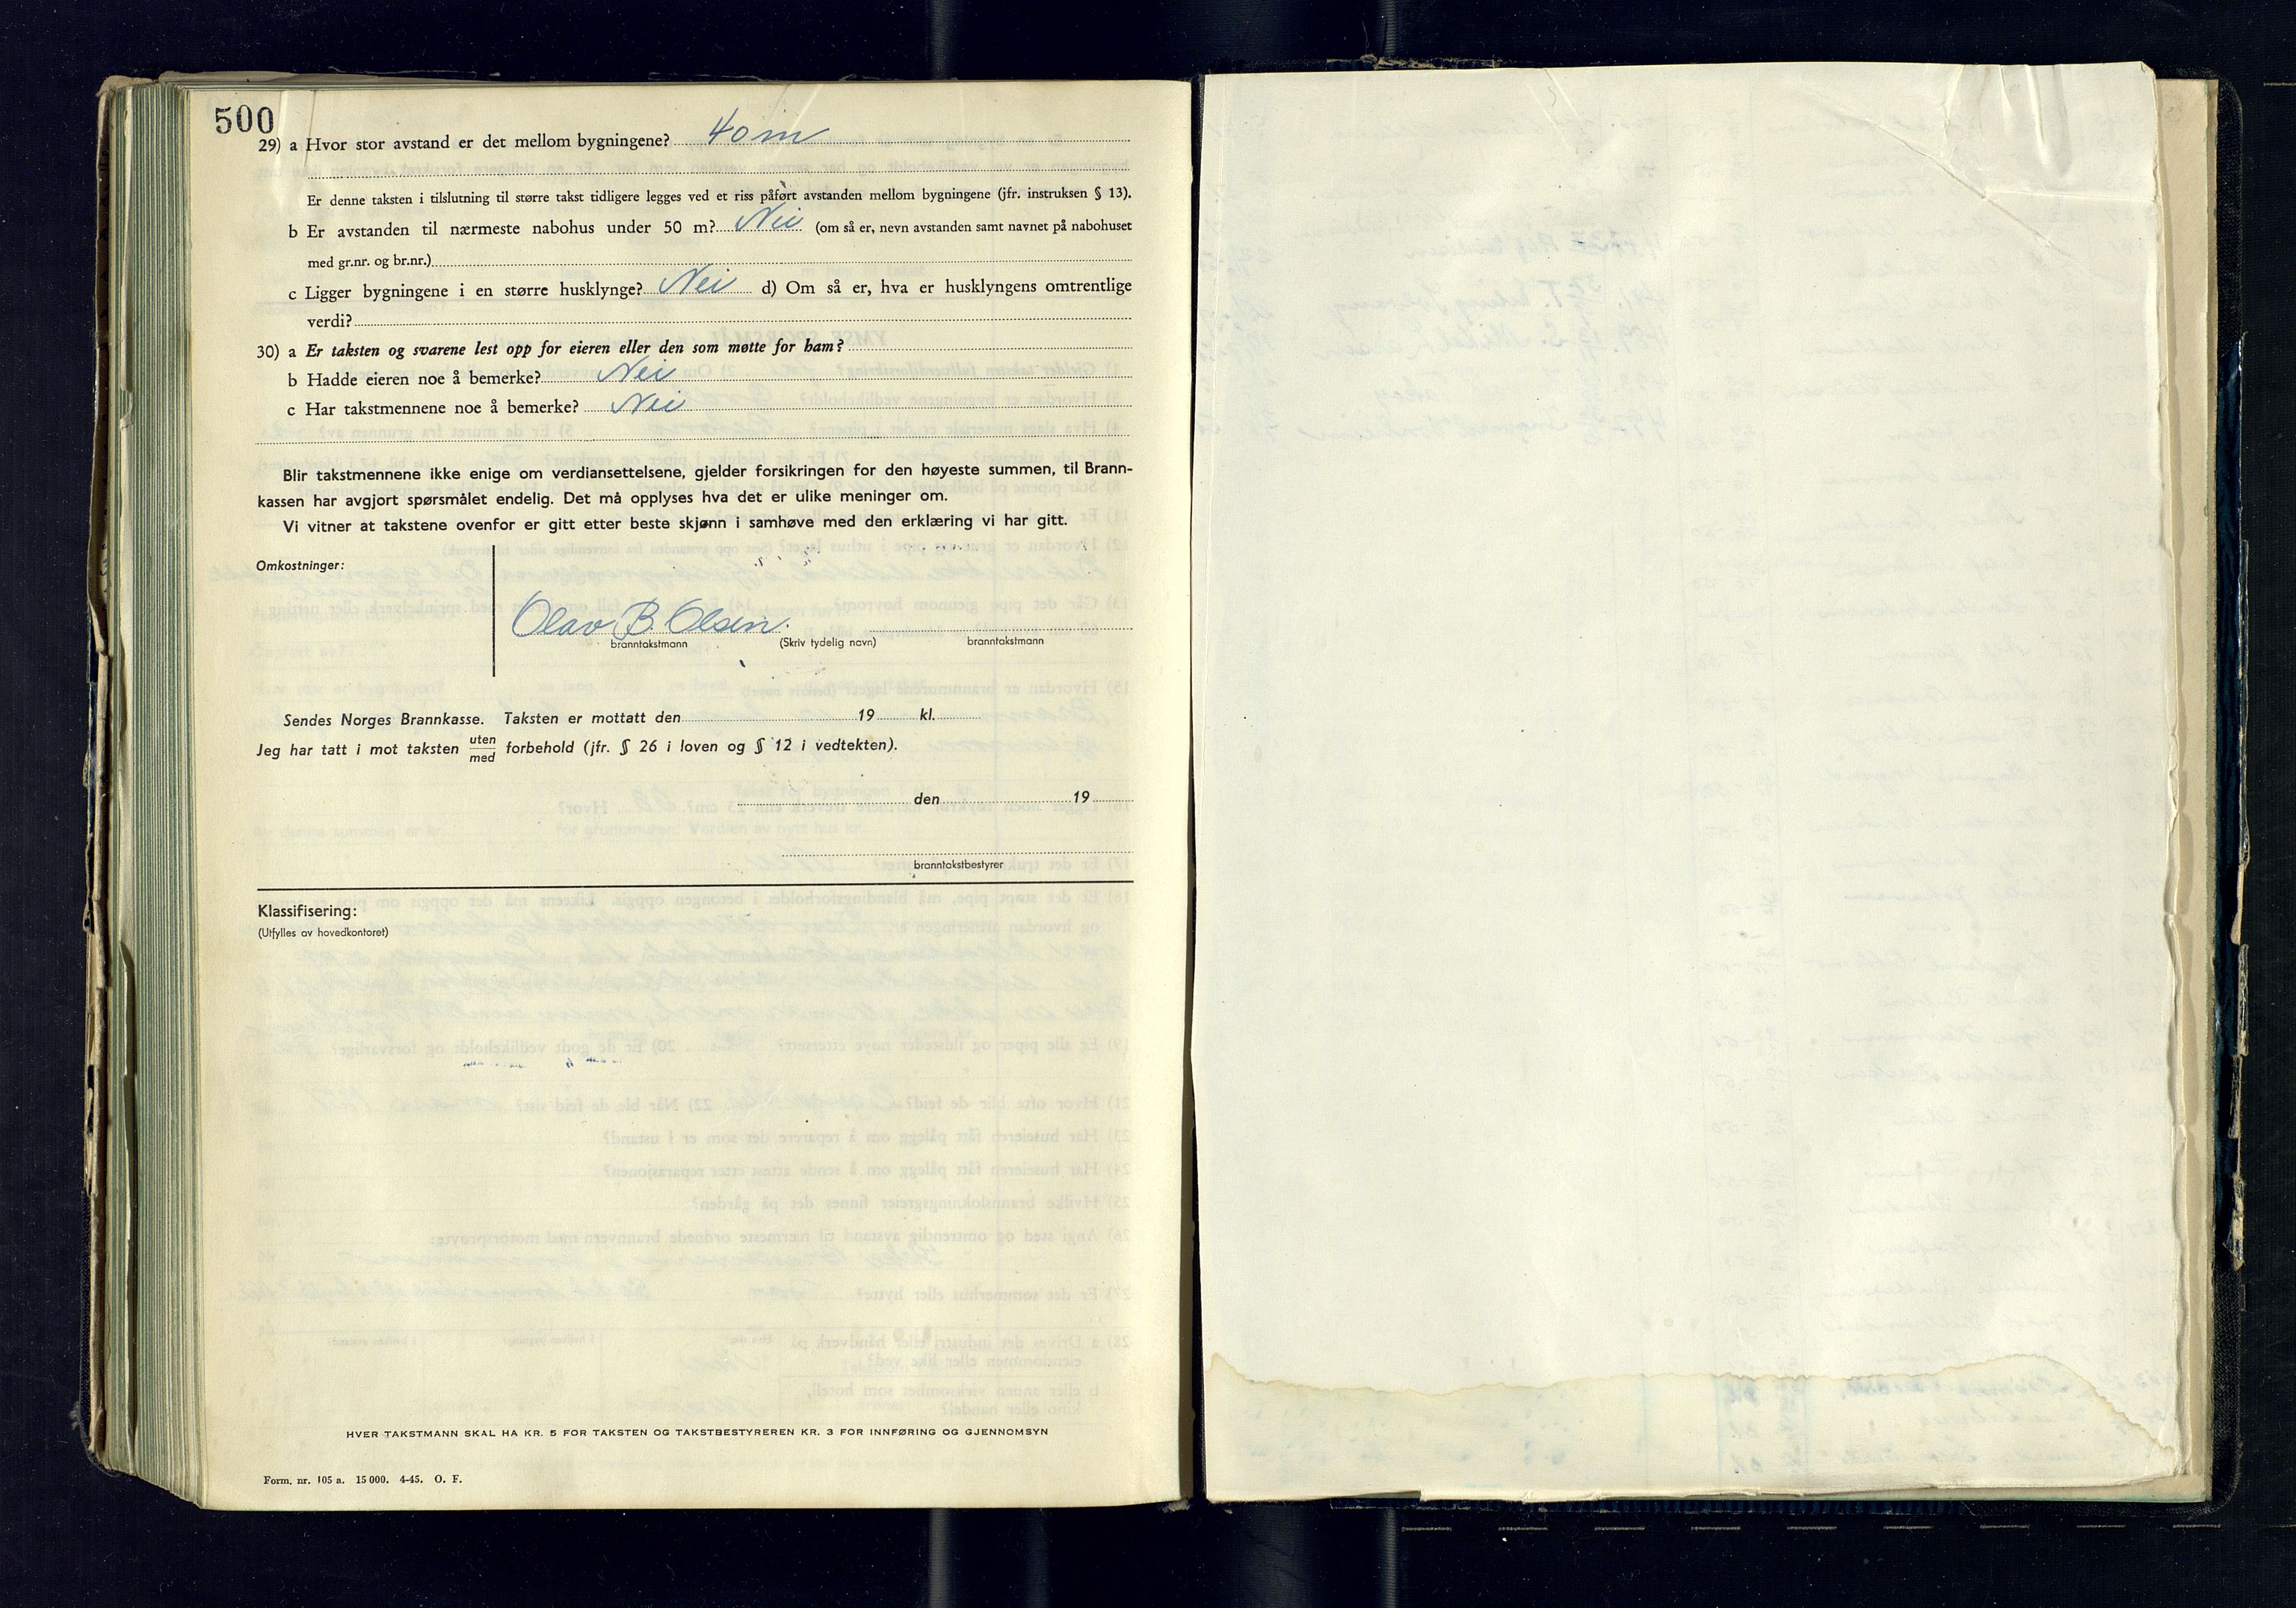 500
29) a Hvor stor avstand er det mellom bygningene? 40 m
Er denne taksten i tilslutning til større takst tidligere legges ved et riss påført avstanden mellom bygningene (jfr. instruksen § 13).
b Er avstanden til nærmeste nabohus under 50 m? Nei (om så er, nevn avstanden samt navnet på nabohuset
med gr.nr. og br.nr.)
c Ligger bygningene i en større husklynge? Nei d) Om så er, hva er husklyngens omtrentlige
verdi?
30) a Er taksten og svarene lest opp for eieren eller den som møtte for ham?
b Hadde eieren noe å bemerke? Nei
c Har takstmennene noe å bemerke? Nei
Blir takstmennene ikke enige om verdiansettelsene, gjelder forsikringen for den høyeste summen, til Brann-
kassen har avgjort spørsmålet endelig. Det må opplyses hva det er ulike meninger om.
Vi vitner at takstene ovenfor er gitt etter beste skjønn i samhøve med den erklæring vi har gitt.
Omkostninger:
Olav B. Olsen.
branntakstmann (Skriv tydelig navn) branntakstmann
Sendes Norges Brannkasse. Taksten er mottatt den 19 kl.
Jeg har tatt i mot taksten uten
med forbehold (jfr. § 26 i loven og § 12 i vedtekten).
den 19
branntakstbestyrer
Klassifisering:
(Utfylles av hovedkontoret)
HVER TAKSTMANN SKAL HA KR. 5 FOR TAKSTEN OG TAKSTBESTYREREN KR. 3 FOR INNFØRING OG GJENNOMSYN
Form. nr. 105 a. 15 000. 4-45. O. F.